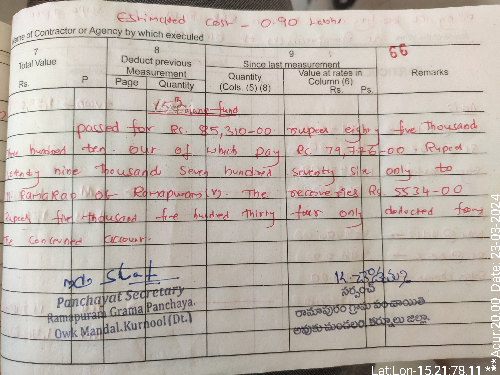 Estimated Cost - 0.90 Lakhs
me of Contractor or Agency by which executed
66
7
Total Value
Rs. P
8
Deduct previous Measurement
Page Quantity
9
Since last measurement
Quantity (Cols. (5) (8)
Value at rates in Column (6)
Rs. Ps.
Remarks
15th Finance fund
passed for Rs. 85,310-00 rupees eighty five Thousand
three hundred ten. out of which pay Rs. 79,776-00. Rupees
seventy nine thousand seven hundred seventy six only to
Ramarao of Ramapuram (v). The recoveries Rs 5534-00
Rupees five thousand five hundred Thirty four only deducted from
to concerned account.
Panchayat Secretary
Ramapuram Grama Panchaya.
Owk Mandal. Kurnool (Dt.)
సర్పంచ్
రామాపురం గ్రామ పంచాయితి
అవుకు మండలం, కర్నూలు జిల్లా.
Lat:Lon-15.21:78.11 ***Acur:20.00 Date:23-03-2024